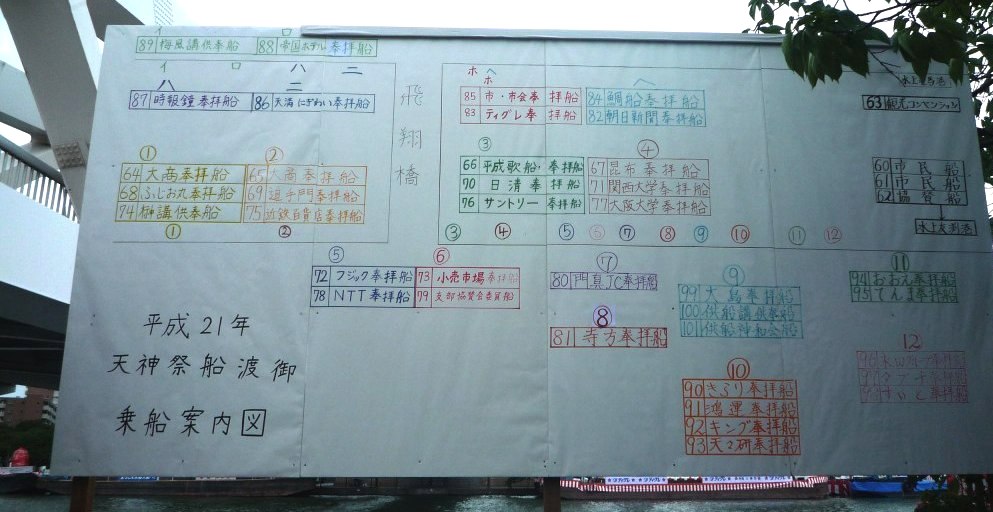 イ ロ
89 梅風講供奉船 88 帝国ホテル奉拝船
イ ロ ハ ニ
ハ ニ
87 時報鐘奉拝船 86 天満にぎわい奉拝船
飛翔橋
ホ ヘ
ホ ヘ
85 市・市会奉拝船 84 鯛船奉拝船
83 ティグレ奉拝船 82 朝日新聞奉拝船
63 観光コンベンション
① ②
64 大商奉拝船 65 大商奉拝船
68 ふじお丸奉拝船 69 追手門奉拝船
74 榊講供奉船 75 近鉄百貨店奉拝船
① ②
③ ④
66 平成歌船・奉拝船 67 昆布奉拝船
70 日清奉拝船 71 関西大学奉拝船
76 サントリー奉拝船 77 大阪大学奉拝船
60 市民船
61 市民船
62 協賛船
③ ④ ⑤ ⑥ ⑦ ⑧ ⑨ ⑩ ⑪ ⑫
⑤ ⑥
72 フジック奉拝船 73 小売市場奉拝船
78 NTT奉拝船 79 支部協賛会役員船
⑦
80 門真JC奉拝船
⑧
81 寺方奉拝船
⑨
99 大島奉拝船
100 供船講供奉船
101 供船神和会船
⑩
90 きらり奉拝船
91 鴻運奉拝船
92 キング奉拝船
93 天2研奉拝船
⑪
94 おおさか奉拝船
95 てんま奉拝船
⑫
平成21年
天神祭船渡御
乗船案内図